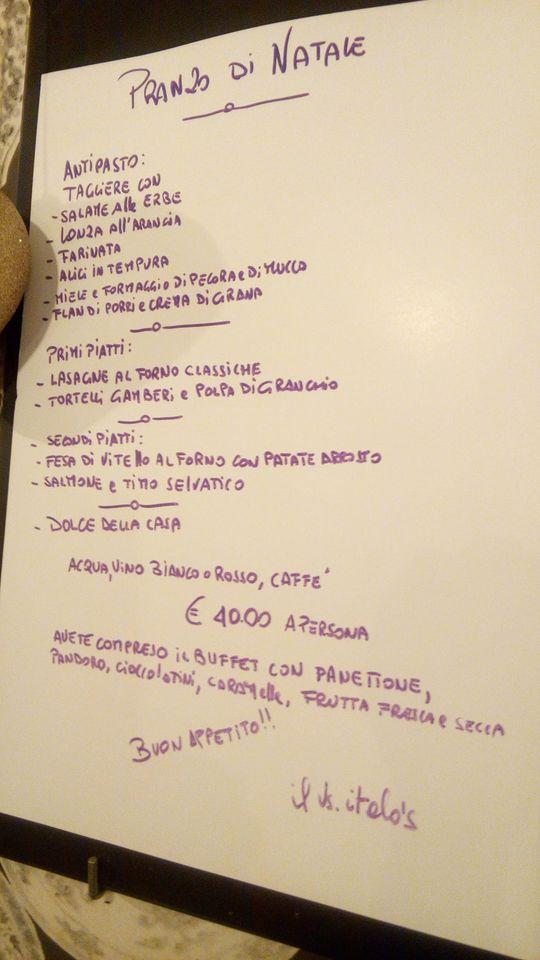 PRANZO DI NATALE
ANTIPASTO:
TAGLIERE CON
- SALAME Alle ERBE
- LONZA All'ARANCIA
- FARINATA
- ALICI IN TEMPURA
- MIELE e FORMAGGIO DI PECORA e DI MUCCA
- FLAN DI PORRI e CREMA DI GRANA
PRIMI PIATTI:
- LASAGNE AL FORNO CLASSICHE
- TORTELLI GAMBERI e POLPA DI GRANCHIO
- SECONDI PIATTI:
- FESA DI VITELLO AL FORNO CON PATATE ARROSTO
- SALMONE e TIMO SELVATICO
- DOLCE DELLA CASA
ACQUA, VINO BIANCO o ROSSO, CAFFE'
€ 40.00 A PERSONA
AVETE COMPRESO il BUFFET CON PANETTONE,
PANDORO, CIOCCOLATINI, CARAMELLE, FRUTTA FRESCA e SECCA
BUON APPETITO!!
il Vs. italo's